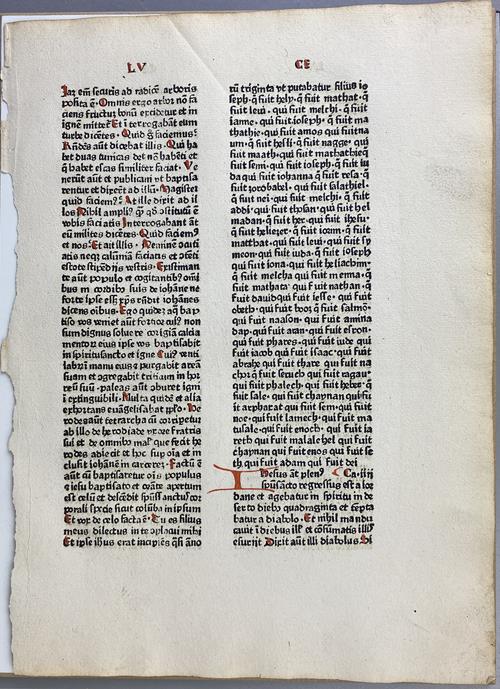 LV
CE
Iaz em̄ secutis ad radicē arboris
posita ē · Omnis ergo arbor nō fa
ciens fructuz bonū excidetur et in
ignē mittet Et īterrogabāt eum
turbe dicētes · Quid g̊ faciemus?
Rñdēs aūt dicebat illis · Qui ha
bet duas tunicas det nō habēti et
q̄ habet escas similiter faciat · Ve
nerūt aūt et publicani vt baptisa
rentur et dixerūt ad illū · Magister
quid faciem? At ille dixit ad il
los Nihil ampli? q̄ qd ostitutū ē
vobis faciatis Interrogabant āt
eū milites dicētes · Quid faciem?
et nos? Et ait illis · Neminē ocuti
atis neqz calumniā faciatis et otēti
estote stipēdijs vestris · Existiman
te aūt populo et cogitantib? omi
bus in cordib? suis de iohāne ne
forte ipse esset xp̄s rñdit iohānes
dicens oībus · Ego quidez aq̄ bap
tiso vos veniet aūt fortior cui? non
sum dignus soluere corigiā calcia
mentoꝝ eius ipse vos baptisabit
in spiritusancto et igne Cui? venti
labrū manu eius et purgabit areā
suam et ogregabit triticum in hor
reū suū · paleas aūt oburet igni
ī extinguibili · Multa quidē et alia
exhortans euāgelisabat pp̄lo · He
rodes aūt tetrarcha cū corripetur
ab illo de herodiade vxore fratris
sui et de omnib? mal? que fecit he
rodes adiecit et hoc supͬ oīa et in
clusit iohānē in carcerez · Factū ē
aūt cū baptisaretur oīs populus
et iesu baptisato et orāte apertum
est celū et descēdit spūssanctus cor
porali specie sicut coluba in ipsum
Et vox de celo facta ē · Tu es filius
meus dilectus in te oplacui mihi
Et ipse ihus erat incipiēs q̄si āno
rū triginta vt putabatur filius io
seph · q̄ fuit hely · q̄ fuit mathat · q̄
fuit leui · q̄ fuit melchi · q̄ fuit
ianne · q̄ fuit ioseph · q̄ fuit ma
thathie · qui fuit amos qui fuit na
um · q̄ fuit hesli · q̄ fuit nagge · qui
fuit maath · qui fuit mathathie q̄
fuit semi · qui fuit ioseph · q̄ fuit iu
da qui fuit iohanna q̄ fuit resa · q̄
fuit zorobabel · q̄ fuit salathiel ·
q̄ fuit neri · q̄ fuit melchi · q̄ fuit
addi · qui fuit chosan · qui fuit hel
madan · q̄ fuit her · qui fuit ihesu ·
q̄ fuit heliezer · q̄ fuit iorim · q̄ fuit
matthat · qui fuit leui · qui fuit sy
meon · qui fuit iuda · q̄ fuit ioseph
qui fuit iona · qui fuit heliachim ·
q̄ fuit melcha qui fuit menna · q̄
fuit mathata qui fuit nathan · q̄
fuit dauid qui fuit iesse · q̄ fuit
obeth · q̄ fuit booz q̄ fuit salmō ·
qui fuit naason · qui fuit amina
dap · qui fuit aran · qui fuit esron ·
qui fuit phares · qui fuit iude qui
fuit iacob qui fuit isaac · qui fuit
abrahe qui fuit thare qui fuit na
chor q̄ fuit seruch qui fuit ragau ·
qui fuit phalech · qui fuit heber · q̄
fuit sale · qui fuit chaynan qui fu
it arphaxat qui fuit sem · qui fuit
noe · qui fuit lamech · qui fuit ma
tusale · qui fuit enoch · qui fuit ia
reth qui fuit malalehel qui fuit
chaynan qui fuit enos qui fuit se
th qui fuit adam qui fuit dei
Iesus āt plen? Ca · iiij
spūsācto regressus est a ior
dane et agebatur in spiritu in de
serto diebꝰ quadraginta et tēpta
batur a diabolo · Et nihil mandu
cauit ī diebus ill? et cōsumatis illꝭ
esurijt Dixit aūt illi diabolus Si